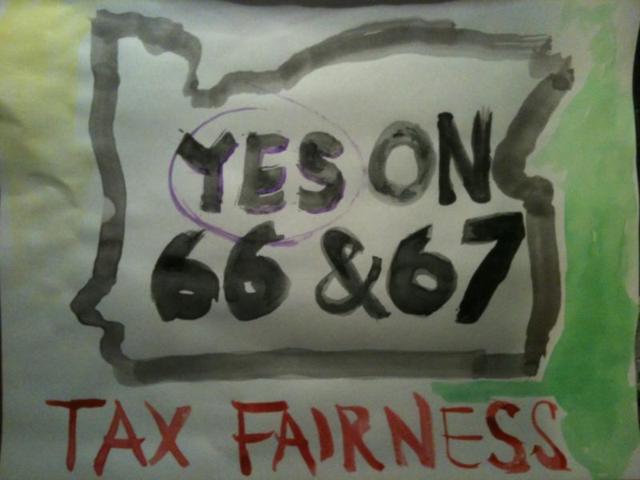 YES ON
66 & 67
TAX FAIRNESS